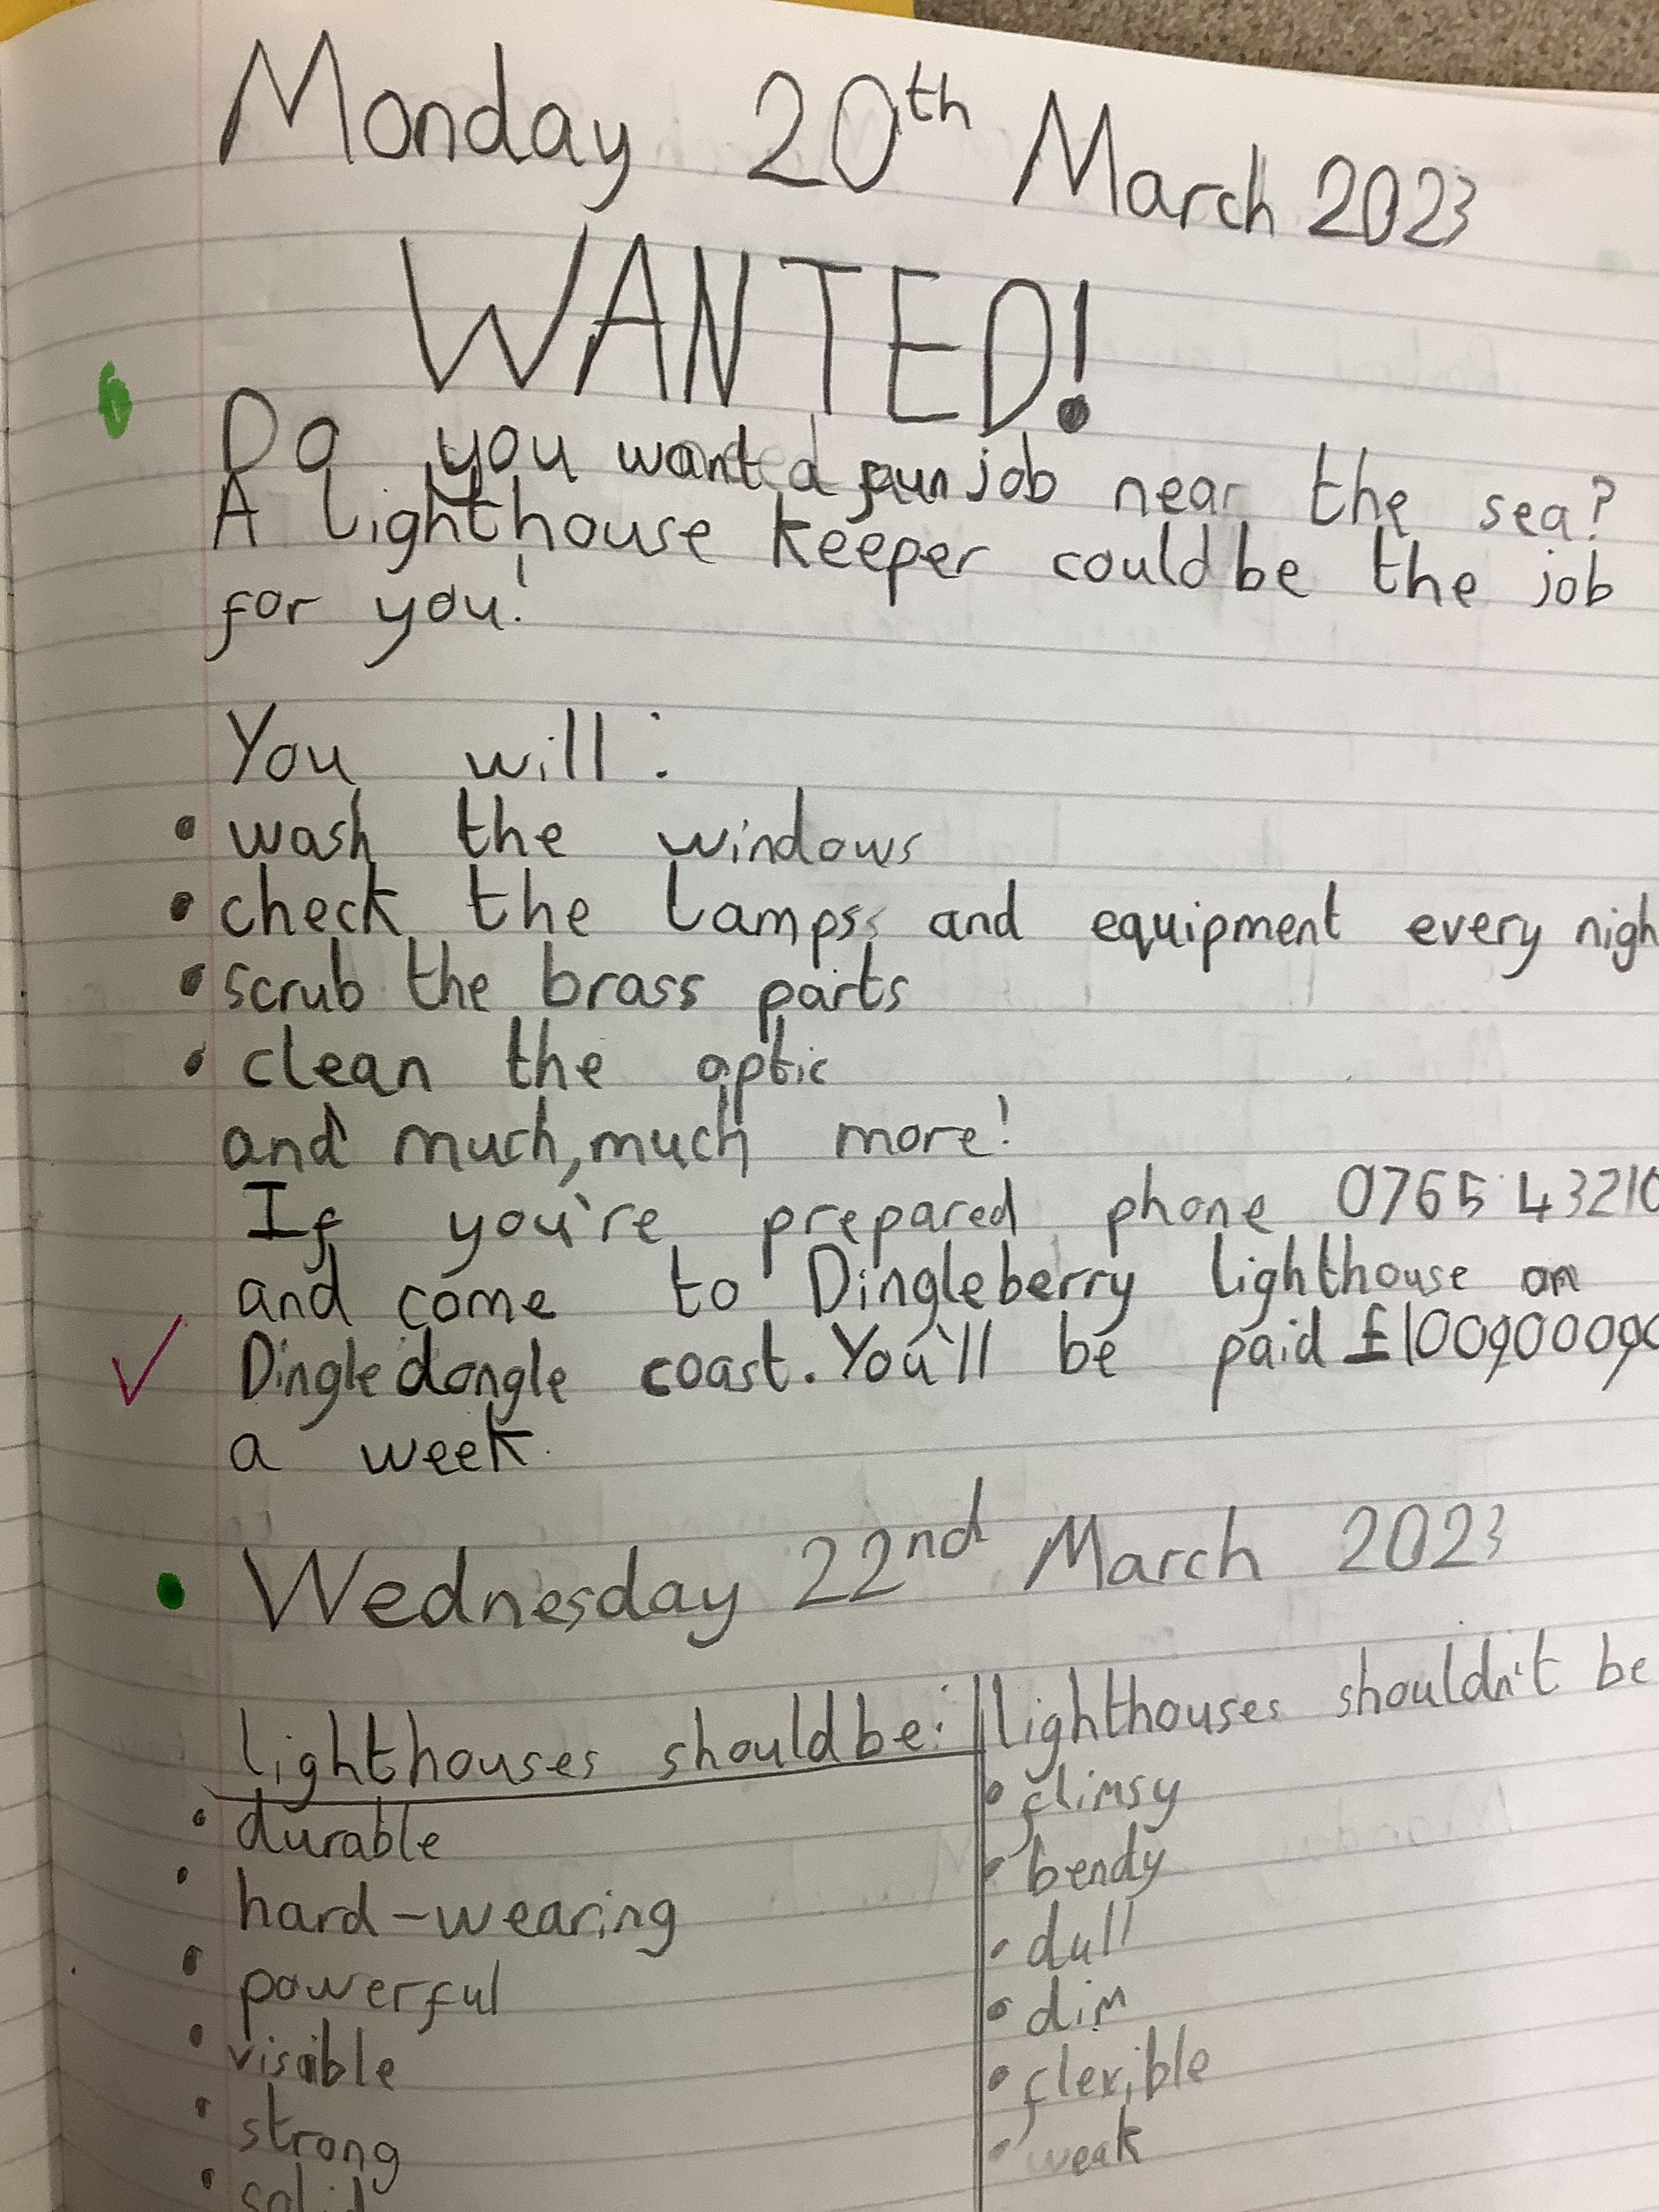 Monday 20th March 2023
WANTED!
Do you want a fun job near the sea?
A lighthouse keeper could be the job
for you!
You will:
• wash the windows
• check the lamps and equipment every nigh
• scrub the brass parts
• clean the optic
and much, much more!
If you're prepared phone 0765 43210
and come to Dingleberry lighthouse on
Dingledongle coast. You'll be paid £100,000,00
a week.
Wednesday 22nd March 2023
lighthouses should be: lighthouses shouldn't be
• durable • flimsy
• hard-wearing • bendy
• powerful • dull
• visible • dim
• strong • flexible
• solid • weak